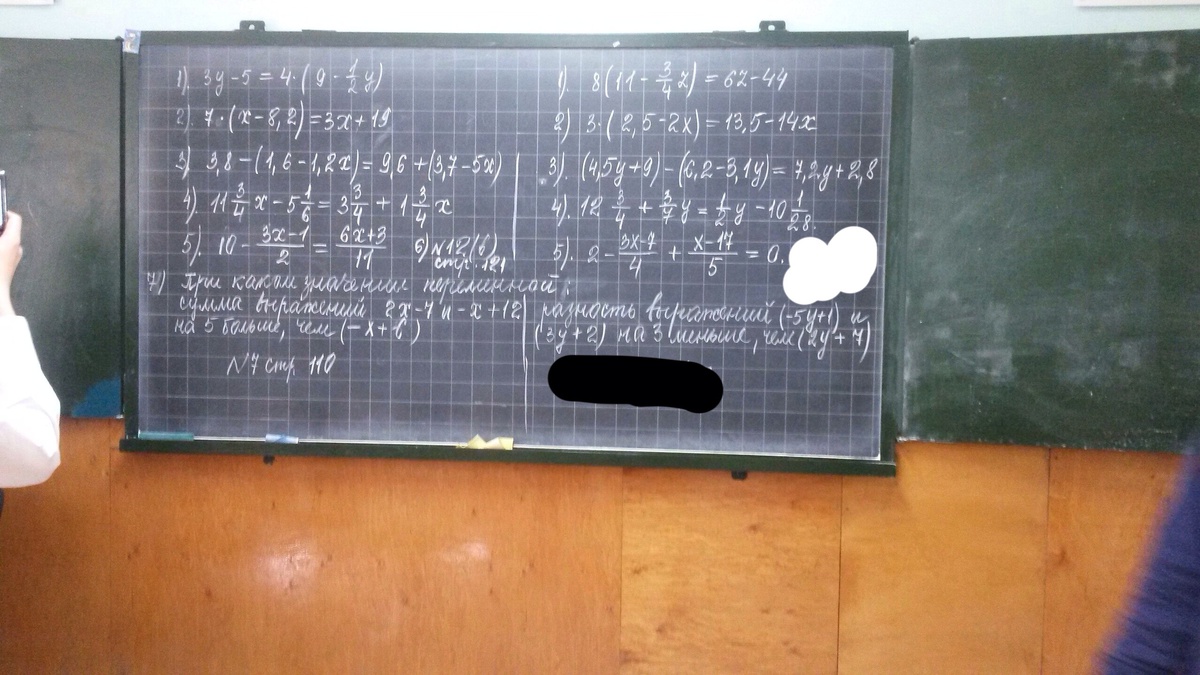 1). 3y-5=4·(9-\frac{1}{2}y)
2). 7·(x-8,2)=3x+19
3) 3,8-(1,6-1,2x)=9,6+(3,7-5x)
4). 11\frac{3}{4}x-5\frac{1}{6}=3\frac{3}{4}+1\frac{3}{4}x
5). 10-\frac{3x-1}{2}=\frac{6x+3}{11} 6) N12(б)
стр. 121
7) При каком значении переменной:
сумма выражений 2x-7 и -x+12
на 5 больше, чем (-x+6)
N7 стр 110
1). 8(11-\frac{3}{4}z)=6z-44
2) 3·(2,5-2x)=13,5-14x
3). (4,5y+9)-(6,2-3,1y)=7,2y+2,8
4). 12\frac{3}{4}+\frac{3}{7}y=\frac{1}{2}y-10\frac{1}{28}.
5). 2-\frac{3x-7}{4}+\frac{x-17}{5}=0.
разность выражений (-5y+1) и
(3y+2) на 3 меньше, чем (2y+7)